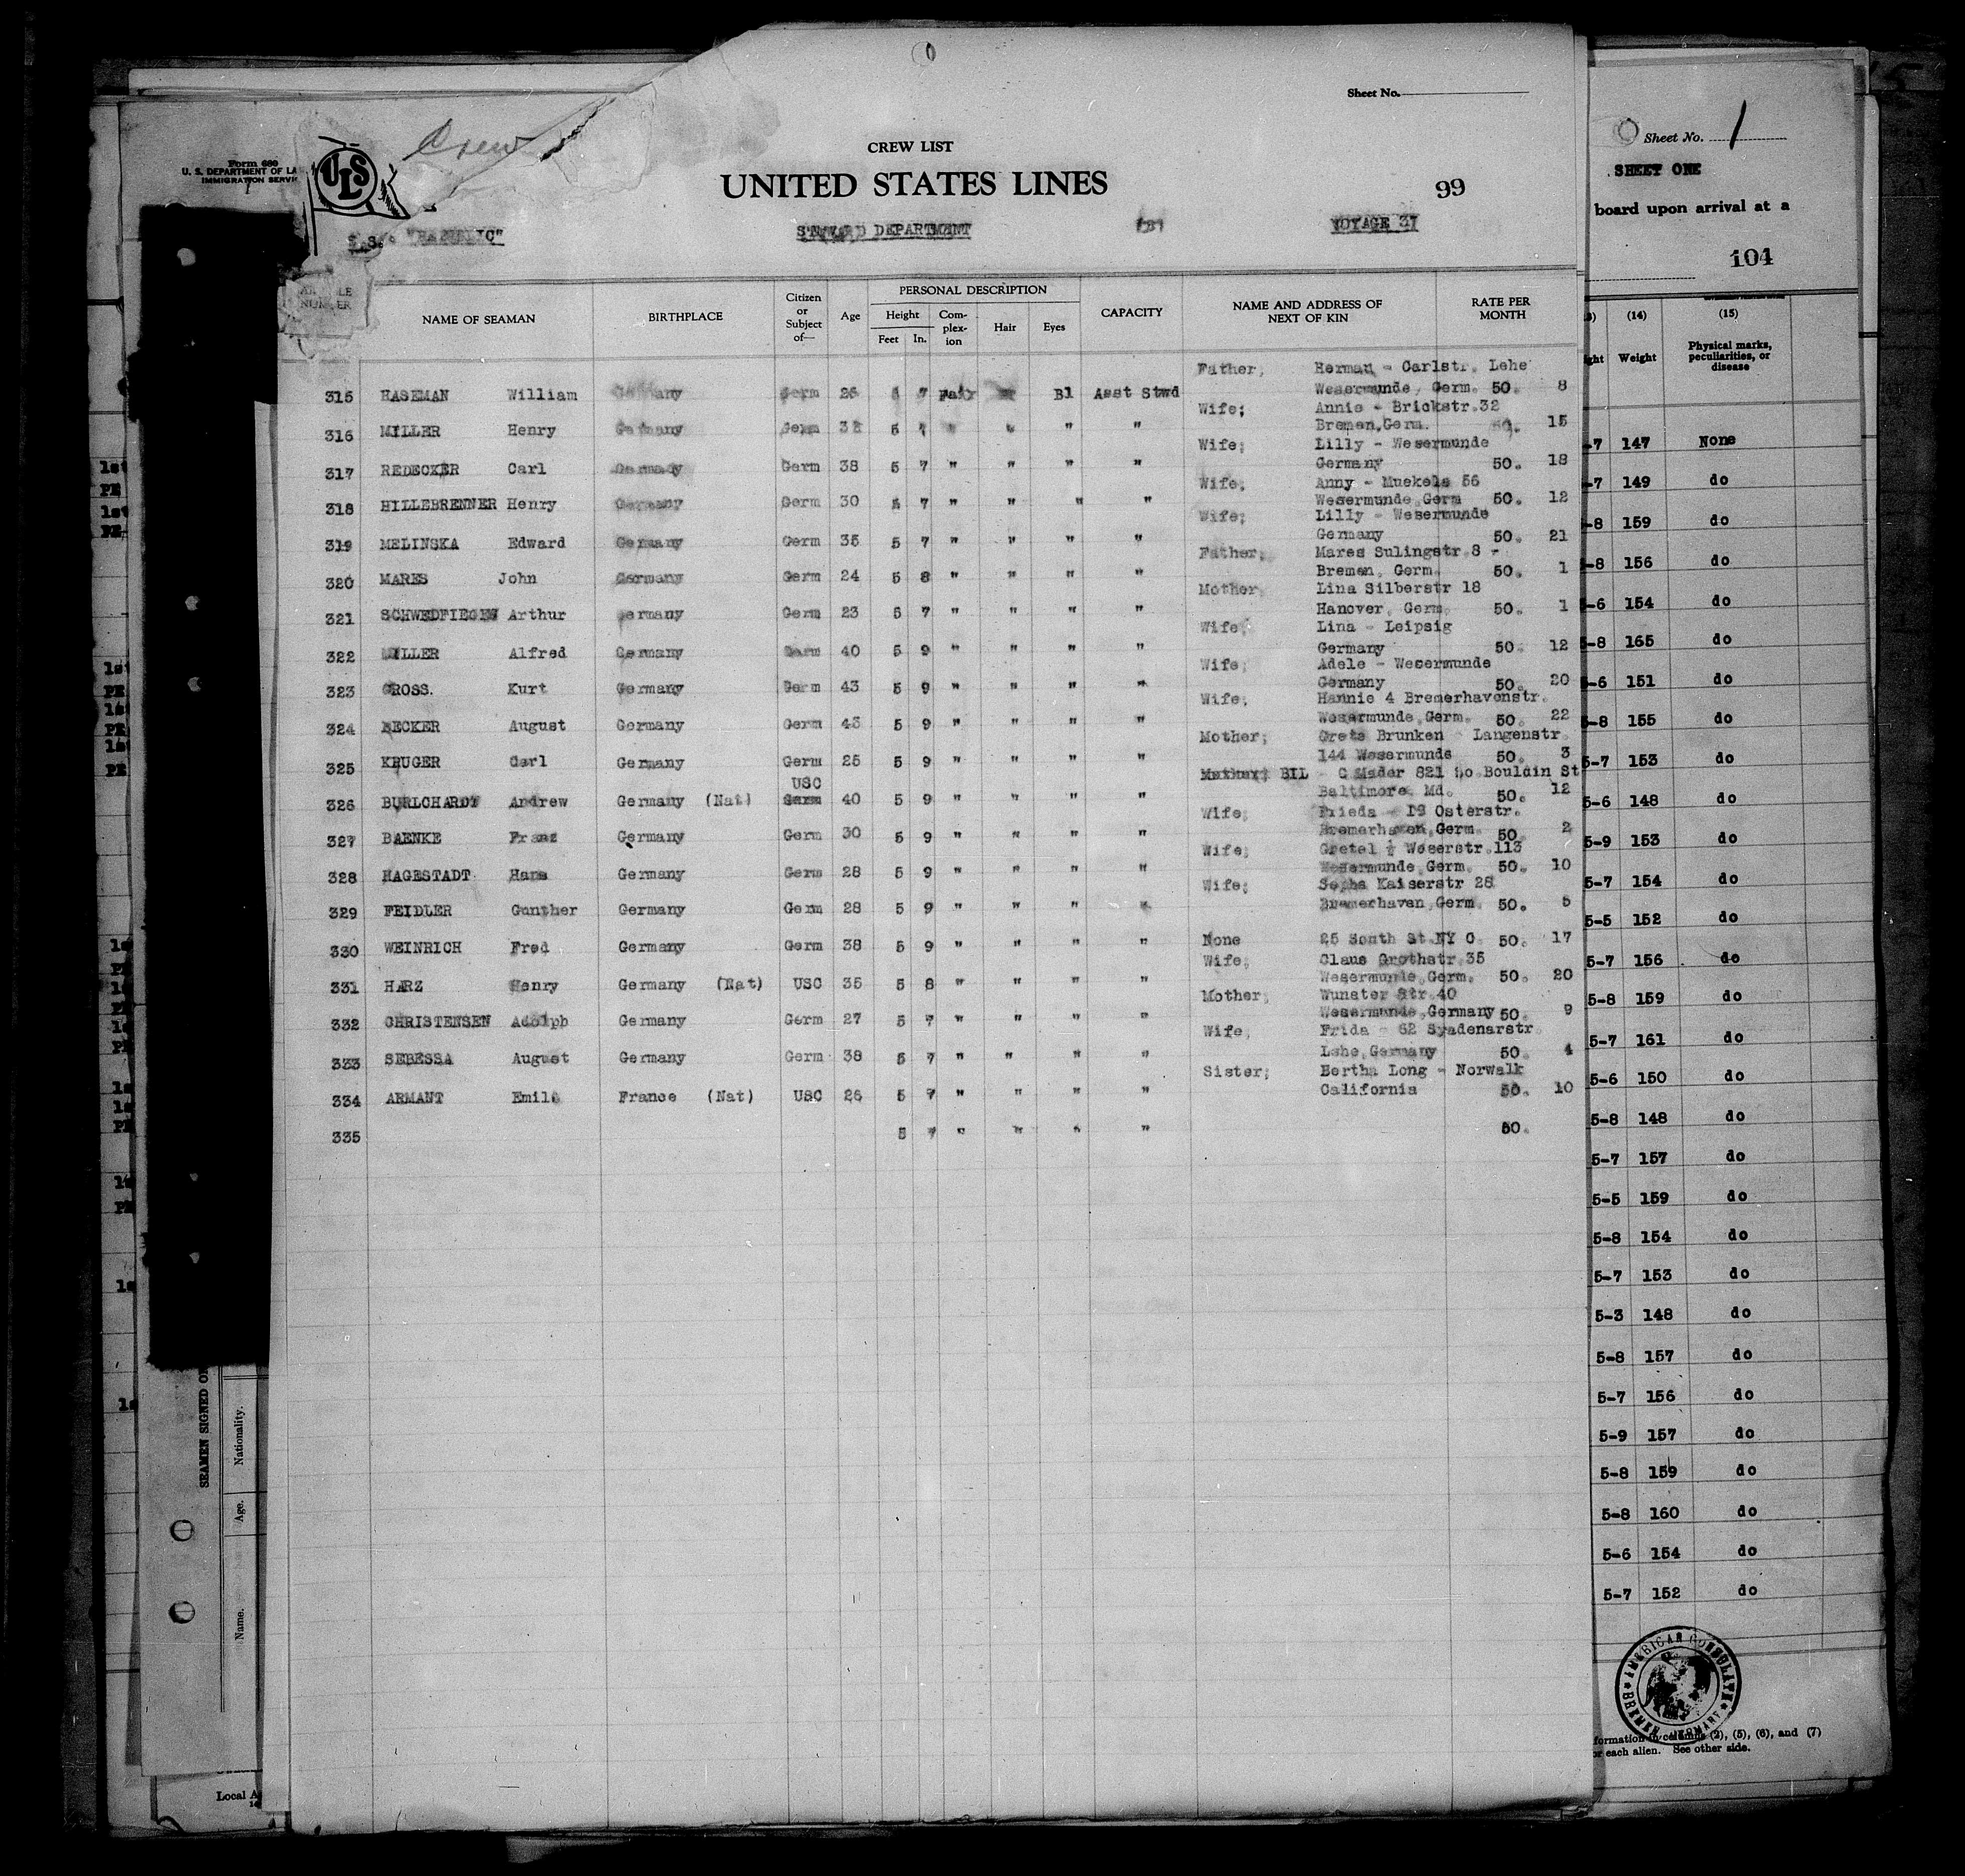 Sheet No.
Crew
Form 689
U. S. DEPARTMENT OF LA
IMMIGRATION SERVIC
ULS
CREW LIST
UNITED STATES LINES
99
S.S. "REPUBLIC"
STEWARD DEPARTMENT
VOYAGE 37
NUMBER
NAME OF SEAMAN
BIRTHPLACE
Citizen or Subject of—
Age
PERSONAL DESCRIPTION
Height
Feet In.
Com-plex-ion
Hair
Eyes
CAPACITY
NAME AND ADDRESS OF NEXT OF KIN
RATE PER MONTH
Father; Herman - Carlstr. Lehe
315 HASEMAN William Germany Germ 26 5 7 Fair Bl Asst Stwd Wesermunde, Germ. 50. 8
Wife; Annie - Brickstr.32
316 MILLER Henry Germany Germ 5 7 " " " Bremen,Germ. 50. 15
Wife; Lilly - Wesermunde
317 REDECKER Carl Germany Germ 38 5 7 " " " " Germany 50. 18
Wife; Anny - Muekels 56
318 HILLEBRENNER Henry Germany Germ 30 5 7 " " " " Wesermunde,Germ 50. 12
Wife; Lilly - Wesermunde
319 MELINSKA Edward Germany Germ 35 5 7 " " " " Germany 50. 21
Father; Mares Sulingstr 8 -
320 MARES John Germany Germ 24 5 8 " " " " Bremen, Germ. 50. 1
Mother; Lina Silberstr 18
321 SCHWEDFIEGEN Arthur Germany Germ 23 5 7 " " " " Hanover, Germ. 50. 1
Wife; Lina - Leipsig
322 MILLER Alfred Germany Germ 40 5 9 " " " " Germany 50. 12
Wife; Adele - Wesermunde
323 GROSS. Kurt Germany Germ 43 5 9 " " " " Germany 50. 20
Wife; Hannie 4 Bremerhavenstr.
324 BECKER August Germany Germ 43 5 9 " " " " Wesermunde,Germ. 50. 22
Mother; Grete Brunken - Langenstr.
325 KRUGER Carl Germany Germ 25 5 9 " " " " 144 Wesermunde 50. 3
USC BIL - C Mader 821 So Bouldin St
326 BURLCHARDT Andrew Germany (Nat) Germ 40 5 9 " " " " Baltimore. Md. 50. 12
Wife; Frieda - 19 Osterstr.
327 BAENKE Franz Germany Germ 30 5 9 " " " " Bremerhaven,Germ. 50. 2
Wife; Gretel - Weserstr.113
328 HAGESTADT Hans Germany Germ 28 5 9 " " " " Wesermunde,Germ. 50. 10
Wife; Sopha Kaiserstr 28
329 FEIDLER Gunther Germany Germ 28 5 9 " " " " Bremerhaven,Germ. 50. 5
330 WEINRICH Fred Germany Germ 38 5 9 " " " " None 25 South St.NY C. 50. 17
Wife; Claus Grothstr.35
331 HARZ Henry Germany (Nat) USC 35 5 8 " " " " Wesermunde,Germ. 50. 20
Mother; Wunster Str.40
332 CHRISTENSEN Adolph Germany Germ 27 5 7 " " " " Wesermunde,Germany 50. 9
Wife; Frida - 62 Syadenarstr.
333 SEBESSA August Germany Germ 38 5 7 " " " " Lehe,Germany 50. 4
Sister; Bertha Long - Norwalk
334 ARMANT Emile France (Nat) USC 26 5 7 " " " " California 50. 10
335 5 7 " " " " 50.
Sheet No. 1
SHEET ONE
board upon arrival at a
104
(14) (15)
ght Weight Physical marks, peculiarities, or disease
-7 147 None
-7 149 do
-8 159 do
-8 156 do
-6 154 do
-8 165 do
-6 151 do
-8 155 do
5-7 153 do
5-6 148 do
5-9 153 do
5-7 154 do
5-5 152 do
5-7 156 do
5-8 159 do
5-7 161 do
5-6 150 do
5-8 148 do
5-7 157 do
5-5 159 do
5-8 154 do
5-7 153 do
5-3 148 do
5-8 157 do
5-7 156 do
5-9 157 do
5-8 159 do
5-8 160 do
5-6 154 do
5-7 152 do
AMERICAN CONSULATE
BREMEN, GERMANY
formation in columns (2), (5), (6), and (7)
or each alien. See other side.
SEAMEN SIGNED O
Nationality.
Age.
Name.
Local A